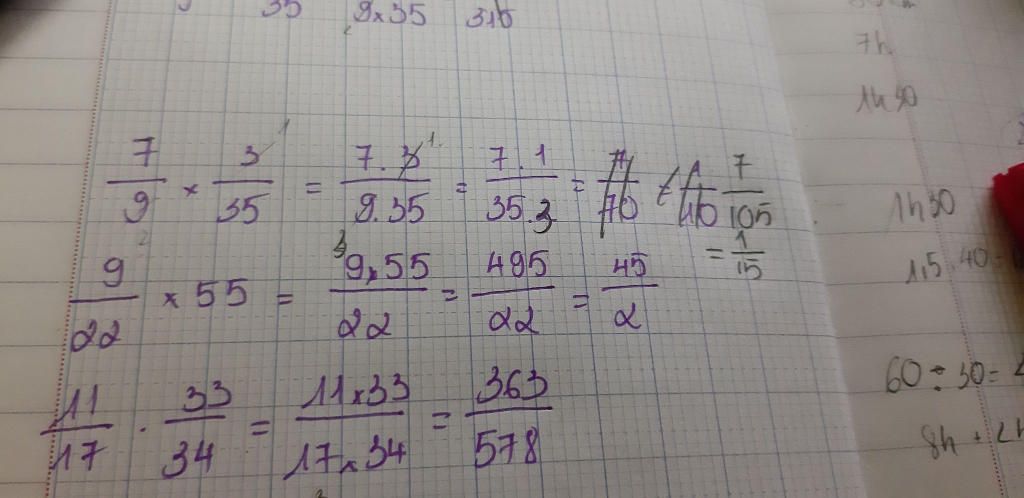 35 9x35 315
7/9 x 3/35 = 7.3/9.35 = 7.1/35.3 = 7/105
= 1/15
9/22 x 55 = 9x55/22 = 495/22 = 45/2
11/17 . 33/34 = 11x33/17x34 = 363/578
7h
1h30
1h30
1,5 40
60 ÷ 30 =